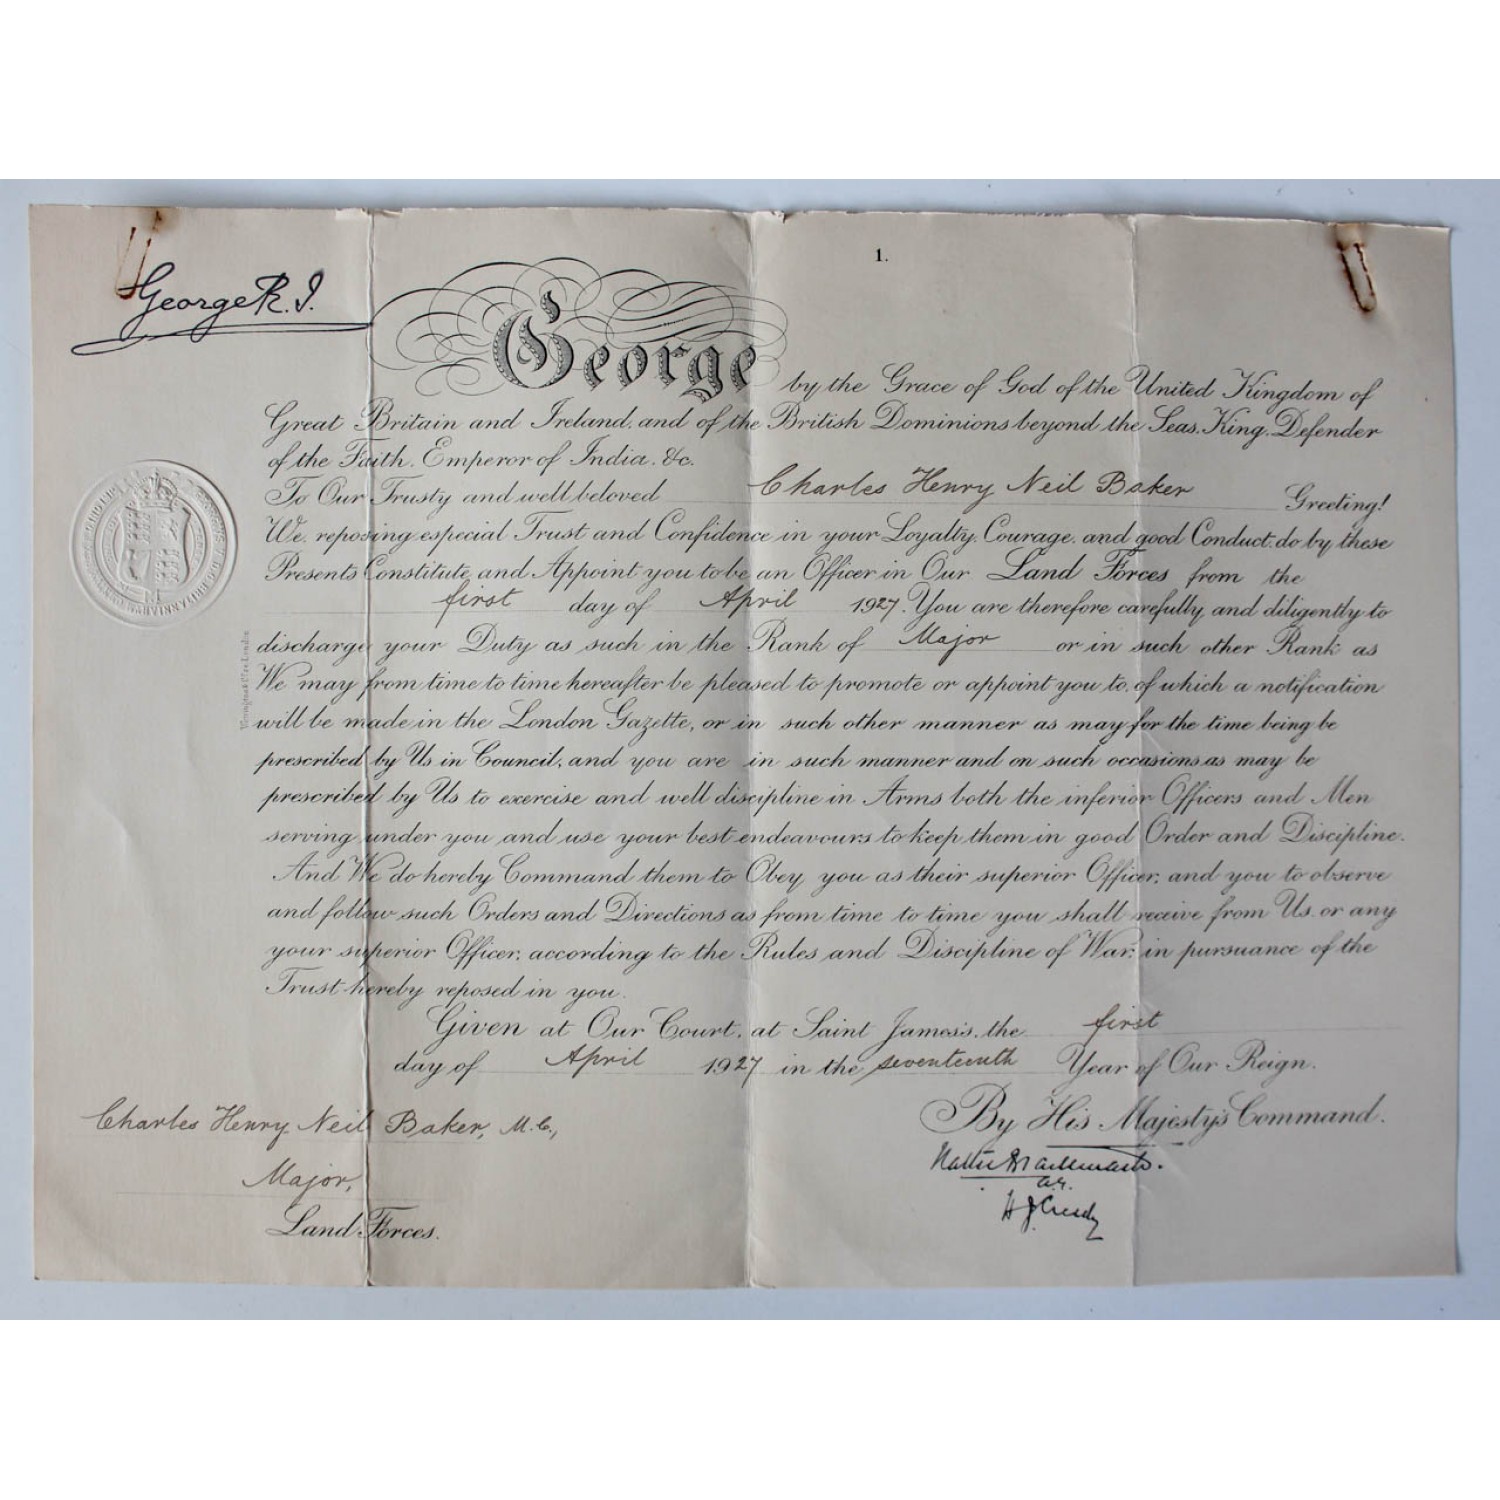 1.
George R.I.
George by the Grace of God of the United Kingdom of
Great Britain and Ireland. and of the British Dominions beyond the Seas. King. Defender
of the Faith. Emperor of India. &c.
To Our Trusty and well beloved Charles Henry Neil Baker Greeting!
We, reposing especial Trust and Confidence in your Loyalty, Courage, and good Conduct, do by these
Presents Constitute and Appoint you to be an Officer in Our Land Forces from the
first day of April 1927. You are therefore carefully and diligently to
discharge your Duty as such in the Rank of Major or in such other Rank as
We may from time to time hereafter be pleased to promote or appoint you to, of which a notification
will be made in the London Gazette, or in such other manner as may for the time being be
prescribed by Us in Council, and you are in such manner and on such occasions as may be
prescribed by Us to exercise and well discipline in Arms both the inferior Officers and Men
serving under you and use your best endeavours to keep them in good Order and Discipline.
And We do hereby Command them to Obey you as their superior Officer, and you to observe
and follow such Orders and Directions as from time to time you shall receive from Us, or any
your superior Officer, according to the Rules and Discipline of War, in pursuance of the
Trust hereby reposed in you.
Given at Our Court, at Saint James's, the first
day of April 1927 in the seventeenth Year of Our Reign.
By His Majesty's Command.
Charles Henry Neil Baker, M.C.,
Major,
Land Forces.
H J Creedy